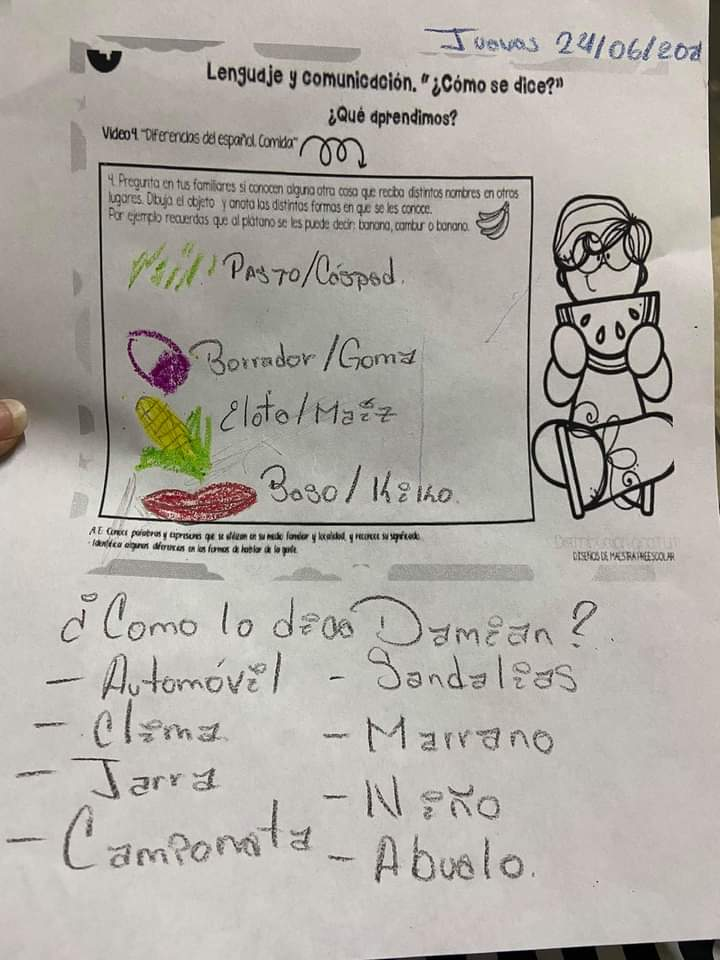 Juevas 24/06/202
Lenguaje y comunicación. "¿Cómo se dice?"
¿Qué aprendimos?
Video 9. "Diferencias del español. Comida"
4. Pregunta en tus familiares si conocen alguna otra cosa que reciba distintos nombres en otros
lugares. Dibuja el objeto y anota las distintas formas en que se les conoce.
Por ejemplo recuerdas que al plátano se les puede decir: banana, cambur o banano.
PASTO/Cósped.
Borrador/Goma
Elote/Maíz
Beso/Kiko.
A.E: Conoce palabras y expresiones que se utilizan en su medio familiar y localidad, y reconoce su significado.
- Identifica algunas diferencias en las formas de hablar de la gente.
DISEÑOS DE MAESTRA PREESCOLAR
¿Como lo dice Damian?
- Automóvil - Sandalias
- Clima - Marrano
- Jarra - Niño
- Camioneta - Abuelo.